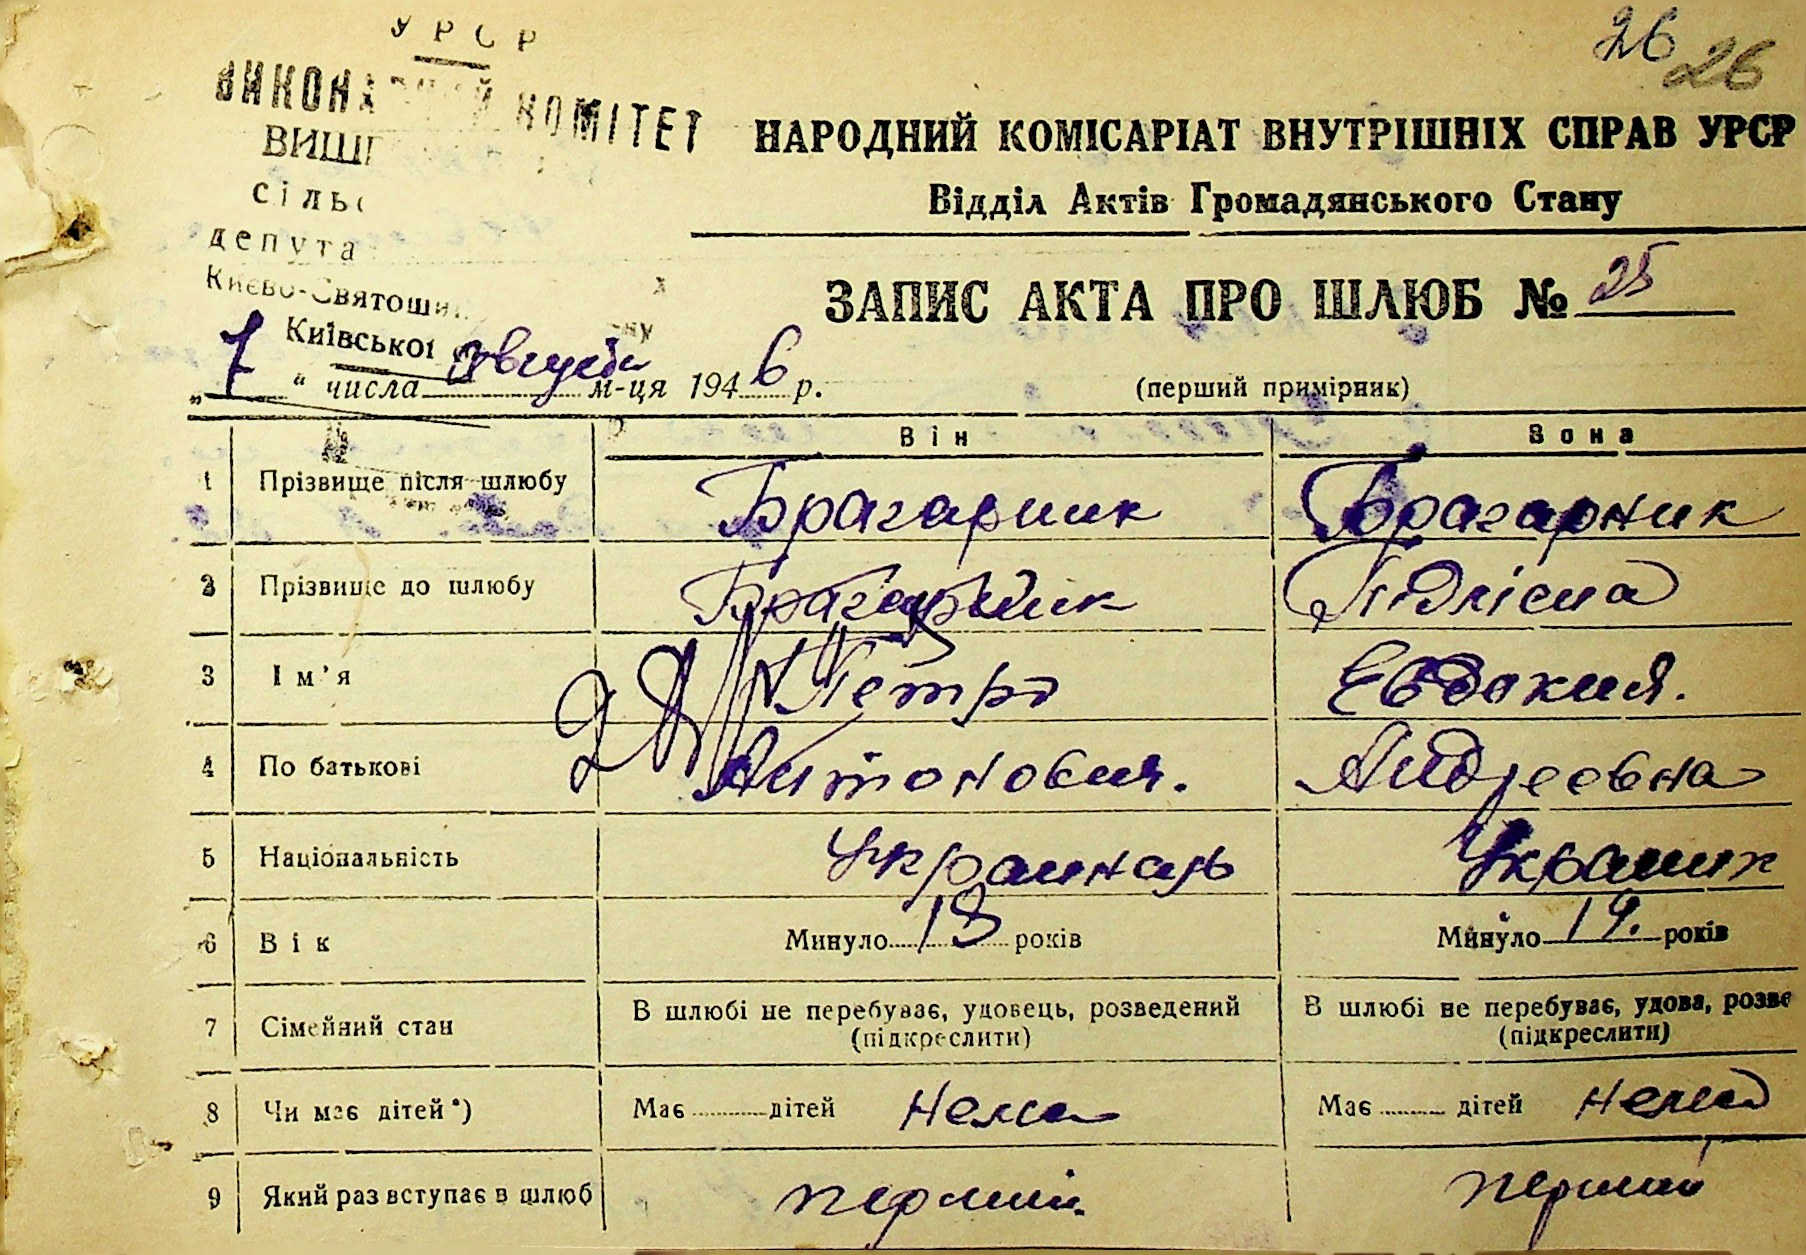 26 26
УРСР
КОМІТЕТ
НАРОДНИЙ КОМІСАРІАТ ВНУТРІШНІХ СПРАВ УРСР
Відділ Актів Громадянського Стану
Київської
ЗАПИС АКТА ПРО ШЛЮБ № 25
„7“ числа августа м-ця 1946 р.
(перший примірник)
Він Вона
1 Прізвище після шлюбу Брагарник Брагарник
2 Прізвище до шлюбу Брагарник Підлісна
3 Ім'я Петро Евдокия.
4 По батькові Антонович. Андреевна
5 Національність Украинець Украинк
6 Вік Минуло 18 років Минуло 19. років
7 Сімейний стан В шлюбі не перебуває, удовець, розведений В шлюбі не перебуває, удова, розве
(підкреслити) (підкреслити)
8 Чи має дітей*) Має дітей нема Має дітей нема
9 Який раз вступає в шлюб перший. перший